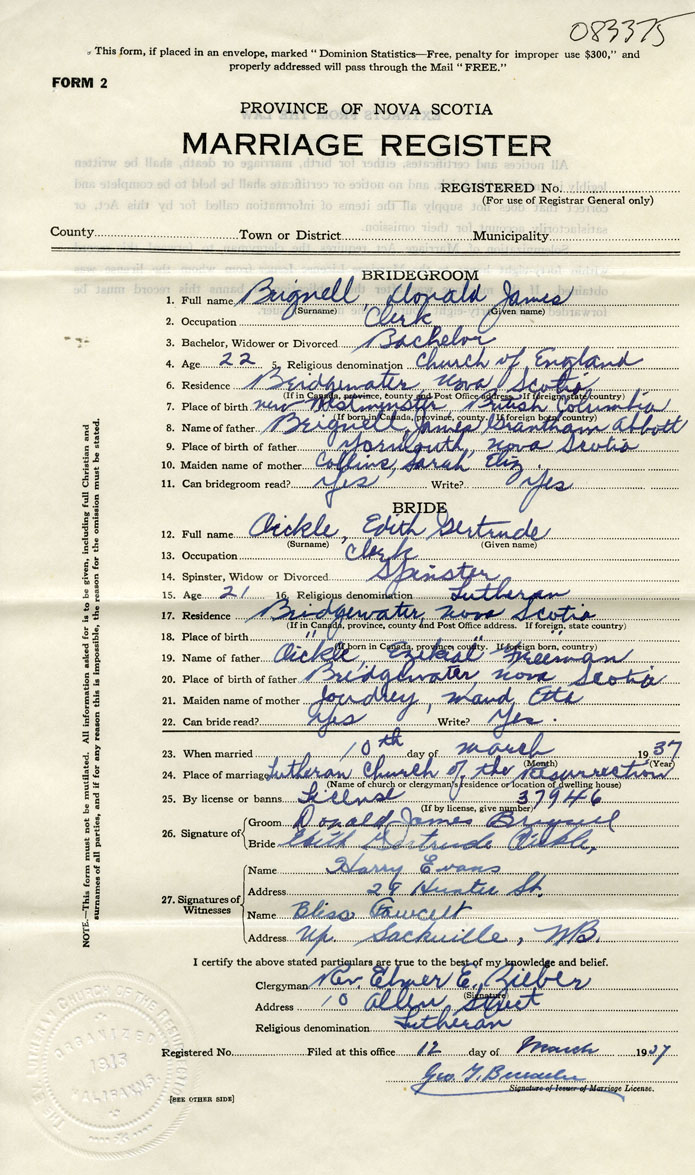 083375
This form, if placed in an envelope, marked "Dominion Statistics—Free, penalty for improper use $300," and
properly addressed will pass through the Mail "FREE."
FORM 2
PROVINCE OF NOVA SCOTIA
MARRIAGE REGISTER
REGISTERED No.
(For use of Registrar General only)
County Town or District Municipality
BRIDEGROOM
1. Full name Brignell, Donald James
(Surname) (Given name)
2. Occupation Clerk
3. Bachelor, Widower or Divorced Bachelor
4. Age 22 5. Religious denomination Church of England
6. Residence Bridgewater, Nova Scotia
(If in Canada, province, county and Post Office address. If foreign, state country)
7. Place of birth New Westminster, British Columbia
(If born in Canada, province, county. If foreign born, country)
8. Name of father Brignell, James Grantham Abbott
9. Place of birth of father Yarmouth, Nova Scotia
10. Maiden name of mother Collins, Sarah Eliz.
11. Can bridegroom read? Yes Write? Yes
BRIDE
12. Full name Oickle, Edith Gertrude
(Surname) (Given name)
13. Occupation Clerk
14. Spinster, Widow or Divorced Spinster
15. Age 21 16. Religious denomination Lutheran
17. Residence Bridgewater, Nova Scotia
(If in Canada, province, county and Post Office address. If foreign, state country)
18. Place of birth " " "
(If born in Canada, province, county. If foreign born, country)
19. Name of father Oickle, Ezikal Freeman
20. Place of birth of father Bridgewater Nova Scotia
21. Maiden name of mother Joudrey, Maud Etta
22. Can bride read? Yes Write? Yes.
23. When married 10th day of March 1937
(Month) (Year)
24. Place of marriage Lutheran Church of the Resurrection
(Name of church or clergyman's residence or location of dwelling house)
25. By license or banns License 37946
(If by license, give number)
26. Signature of Groom Donald James Brignell
Bride Edith Gertrude Oickle,
27. Signatures of Witnesses
Name Harry Evans
Address 28 Hunter St.
Name Bliss Fawcett
Address Up. Sackville, NB.
I certify the above stated particulars are true to the best of my knowledge and belief.
Clergyman Rev. Elmer E. Bieber
(Signature)
Address 10 Allen Street
Religious denomination Lutheran
Registered No. Filed at this office 12 day of March 1937
Geo. T.
Signature of Issuer of Marriage License.
[SEE OTHER SIDE]
NOTE.—This form must not be mutilated. All information asked for is to be given, including full Christian and
surnames of all parties, and if for any reason this is impossible, the reason for the omission must be stated.
ORGANIZED
1913
HALIFAX N.S.